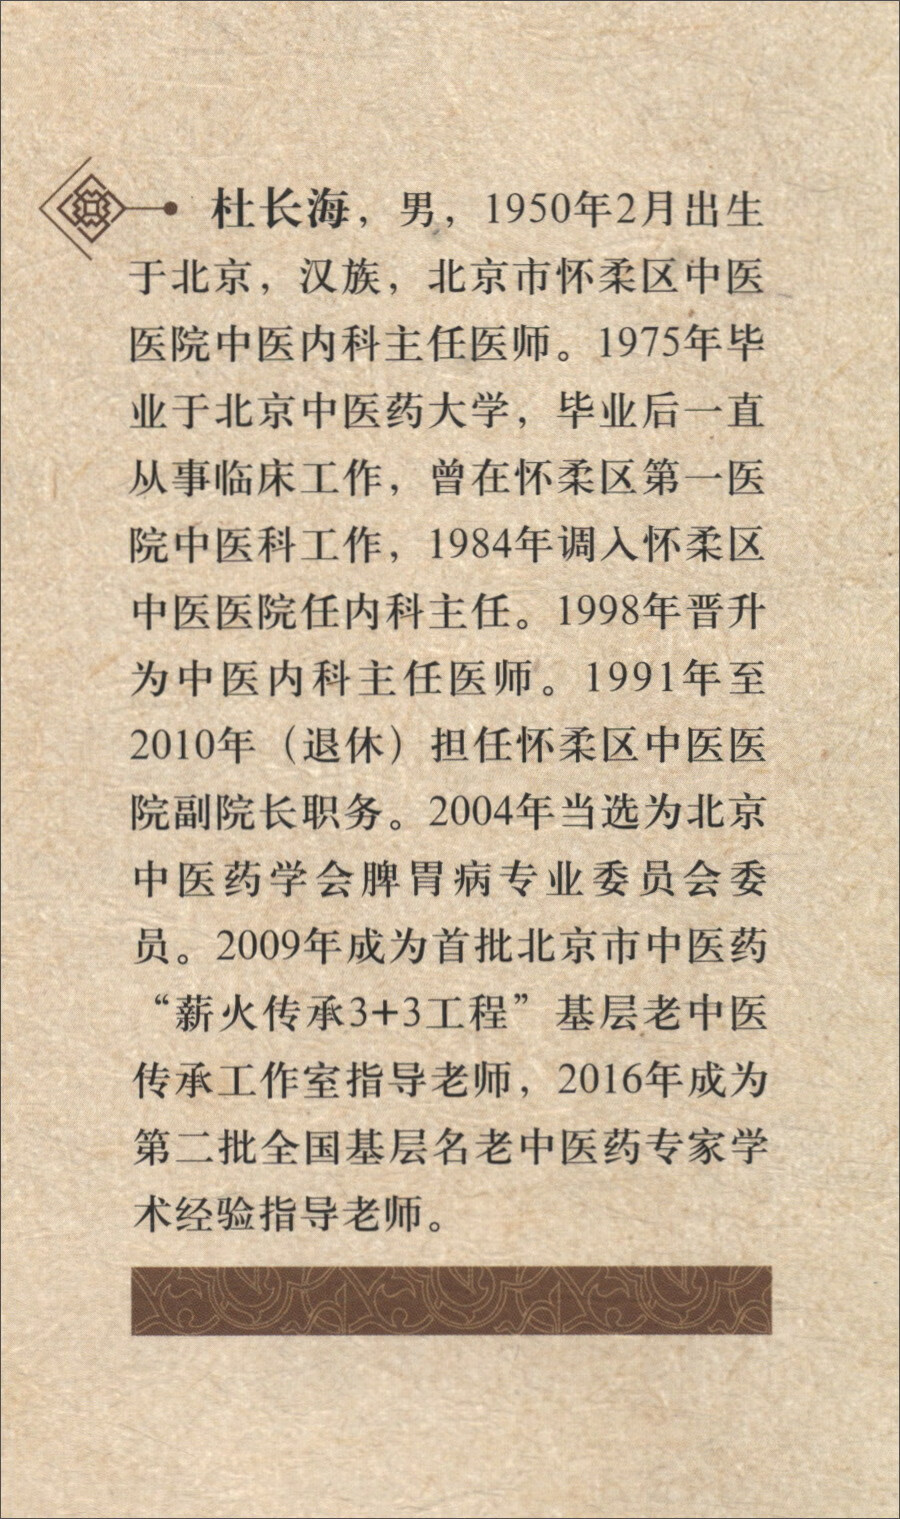 杜长海，男，1950年2月出生
于北京，汉族，北京市怀柔区中医
医院中医内科主任医师。1975年毕
业于北京中医药大学，毕业后一直
从事临床工作，曾在怀柔区第一医
院中医科工作，1984年调入怀柔区
中医医院任内科主任。1998年晋升
为中医内科主任医师。1991年至
2010年（退休）担任怀柔区中医医
院副院长职务。2004年当选为北京
中医药学会脾胃病专业委员会委
员。2009年成为首批北京市中医药
“薪火传承3+3工程”基层老中医
传承工作室指导老师，2016年成为
第二批全国基层名老中医药专家学
术经验指导老师。